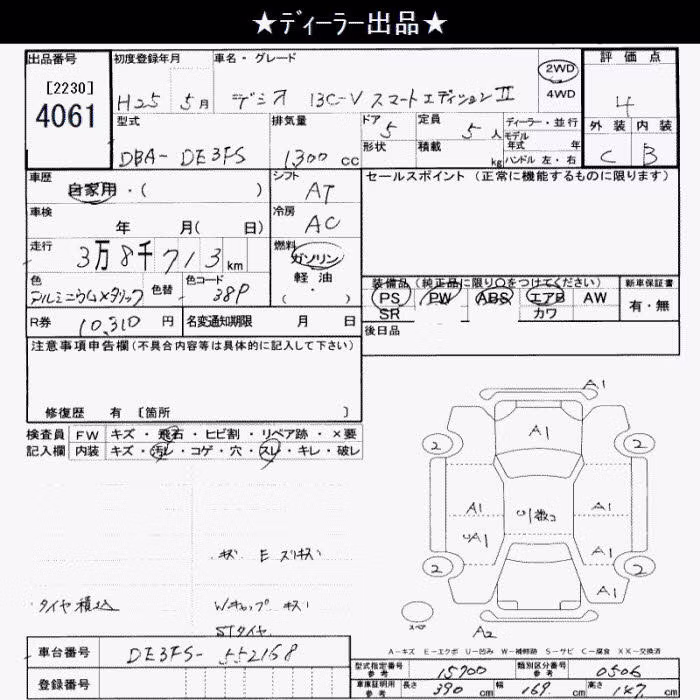 ★ディーラー出品★
出品番号
[2230]
4061
初度登録年月
H25 5月
車名・グレード
デミオ 13C-V スマートエディションⅡ
2WD
4WD
評価点
4
外装 内装
C B
型式
DBA-DE3FS
排気量
1300 cc
ドア 5
形状
定員 5人
積載 kg
ディーラー・並行
モデル
年式 年
ハンドル 左・右
車歴
自家用・( )
シフト
AT
セールスポイント (正常に機能するものに限ります)
車検
年 月( 日)
冷房
AC
走行
3万8千713km
燃料
ガソリン
軽油
( ・ )
色
アルミニウムメタリック
色替
色コード
38P
装備品 (純正品に限り○をつけてください)
PS PW ABS エアB AW
SR カワ
新車保証書
有・無
R券 10,310 円
名変通知期限 月 日
後日品
注意事項申告欄(不具合内容等は具体的に記入して下さい)
修復歴 有 [箇所 ]
検査員 FW キズ・飛石・ヒビ割・リペア跡・×要
記入欄 内装 キズ・汚レ・コゲ・穴・スレ・キレ・破レ
A1
A1
2 2
A1 A1
A1 A1
2 2
A1
A2
スペア
キズ E スリキズ
タイヤ積込 Wキャップ キズ
STタイヤ
A-キズ E-エクボ U-凹み W-補修跡 S-サビ C-腐食 XX-交換済
車台番号 DE3FS-552168
登録番号
型式指定番号
参考
15700
類別区分番号
参考
0506
車庫証明用
参考
長さ 390 cm 幅 169 cm 高さ 147 cm